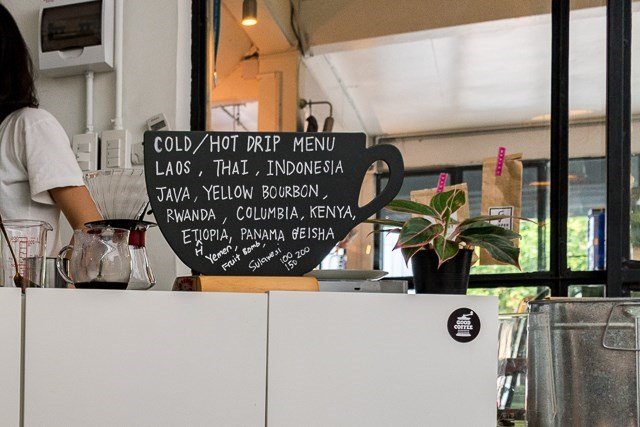 COLD/HOT DRIP MENU
LAOS, THAI, INDONESIA
JAVA, YELLOW BOURBON,
RWANDA, COLUMBIA, KENYA,
ETIOPIA, PANAMA GEISHA
H Yemen,
Fruit Bomb,
Sulawesi 100 200
150
GOOD
COFFEE